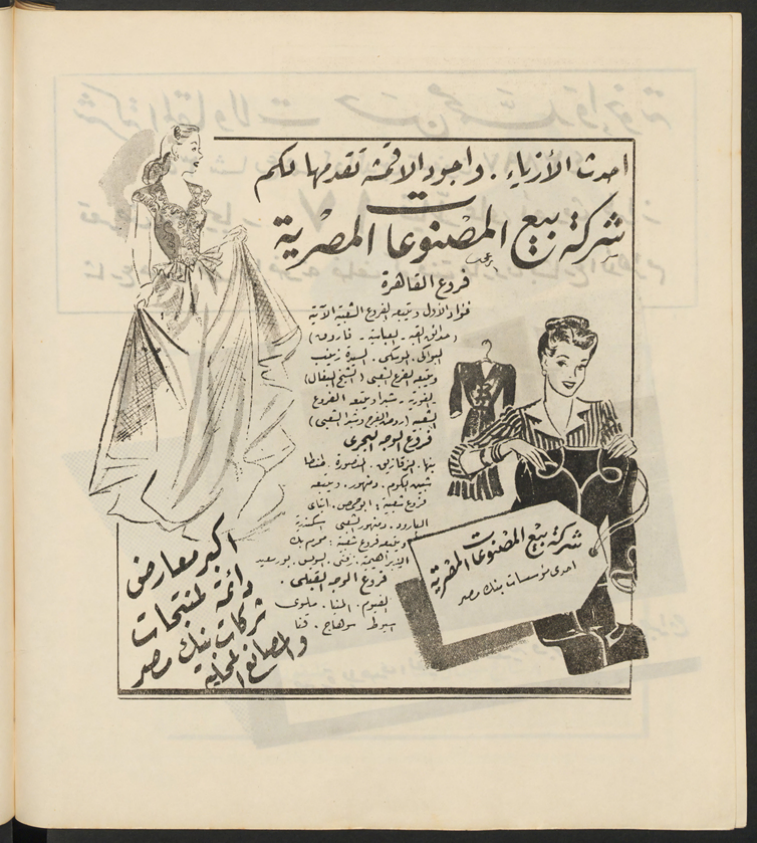 احدث الأزياء . واجود الاقمشة تقدمها لكم
شركة بيع المصنوعات المصرية
فروع القاهرة
فؤاد الأول ويتبعه الفروع الشعبية الآتية
(حدائق القبه - العباسية - فاروق)
البواكى . الموسكى . السيدة زينب
ويتبعه الفرع الشعبى (الشيخ البقال)
شبرا ويتبعه الفروع
الشعبية (روض الفرج وشبرا الشعبى)
فروع الوجه البحرى
بنها . الزقازيق . المنصورة . طنطا
شبين الكوم . دمنهور . ويتبعه
فروع شعبية : ابو حمص . ايتاى
البارود . ودمنهور الشعبى اسكندرية
ويتبعه فروع شعبية : محرم بك
الابراهيمية . زفتى . السويس . بورسعيد
فروع الوجه القبلى .
الفيوم . المنيا . ملوى
اسيوط سوهاج . قنا
اكبر معارض
دائمة لمنتجات
شركات بنك مصر
والمصانع المحلية
شركة بيع المصنوعات المصرية
احدى مؤسسات بنك مصر